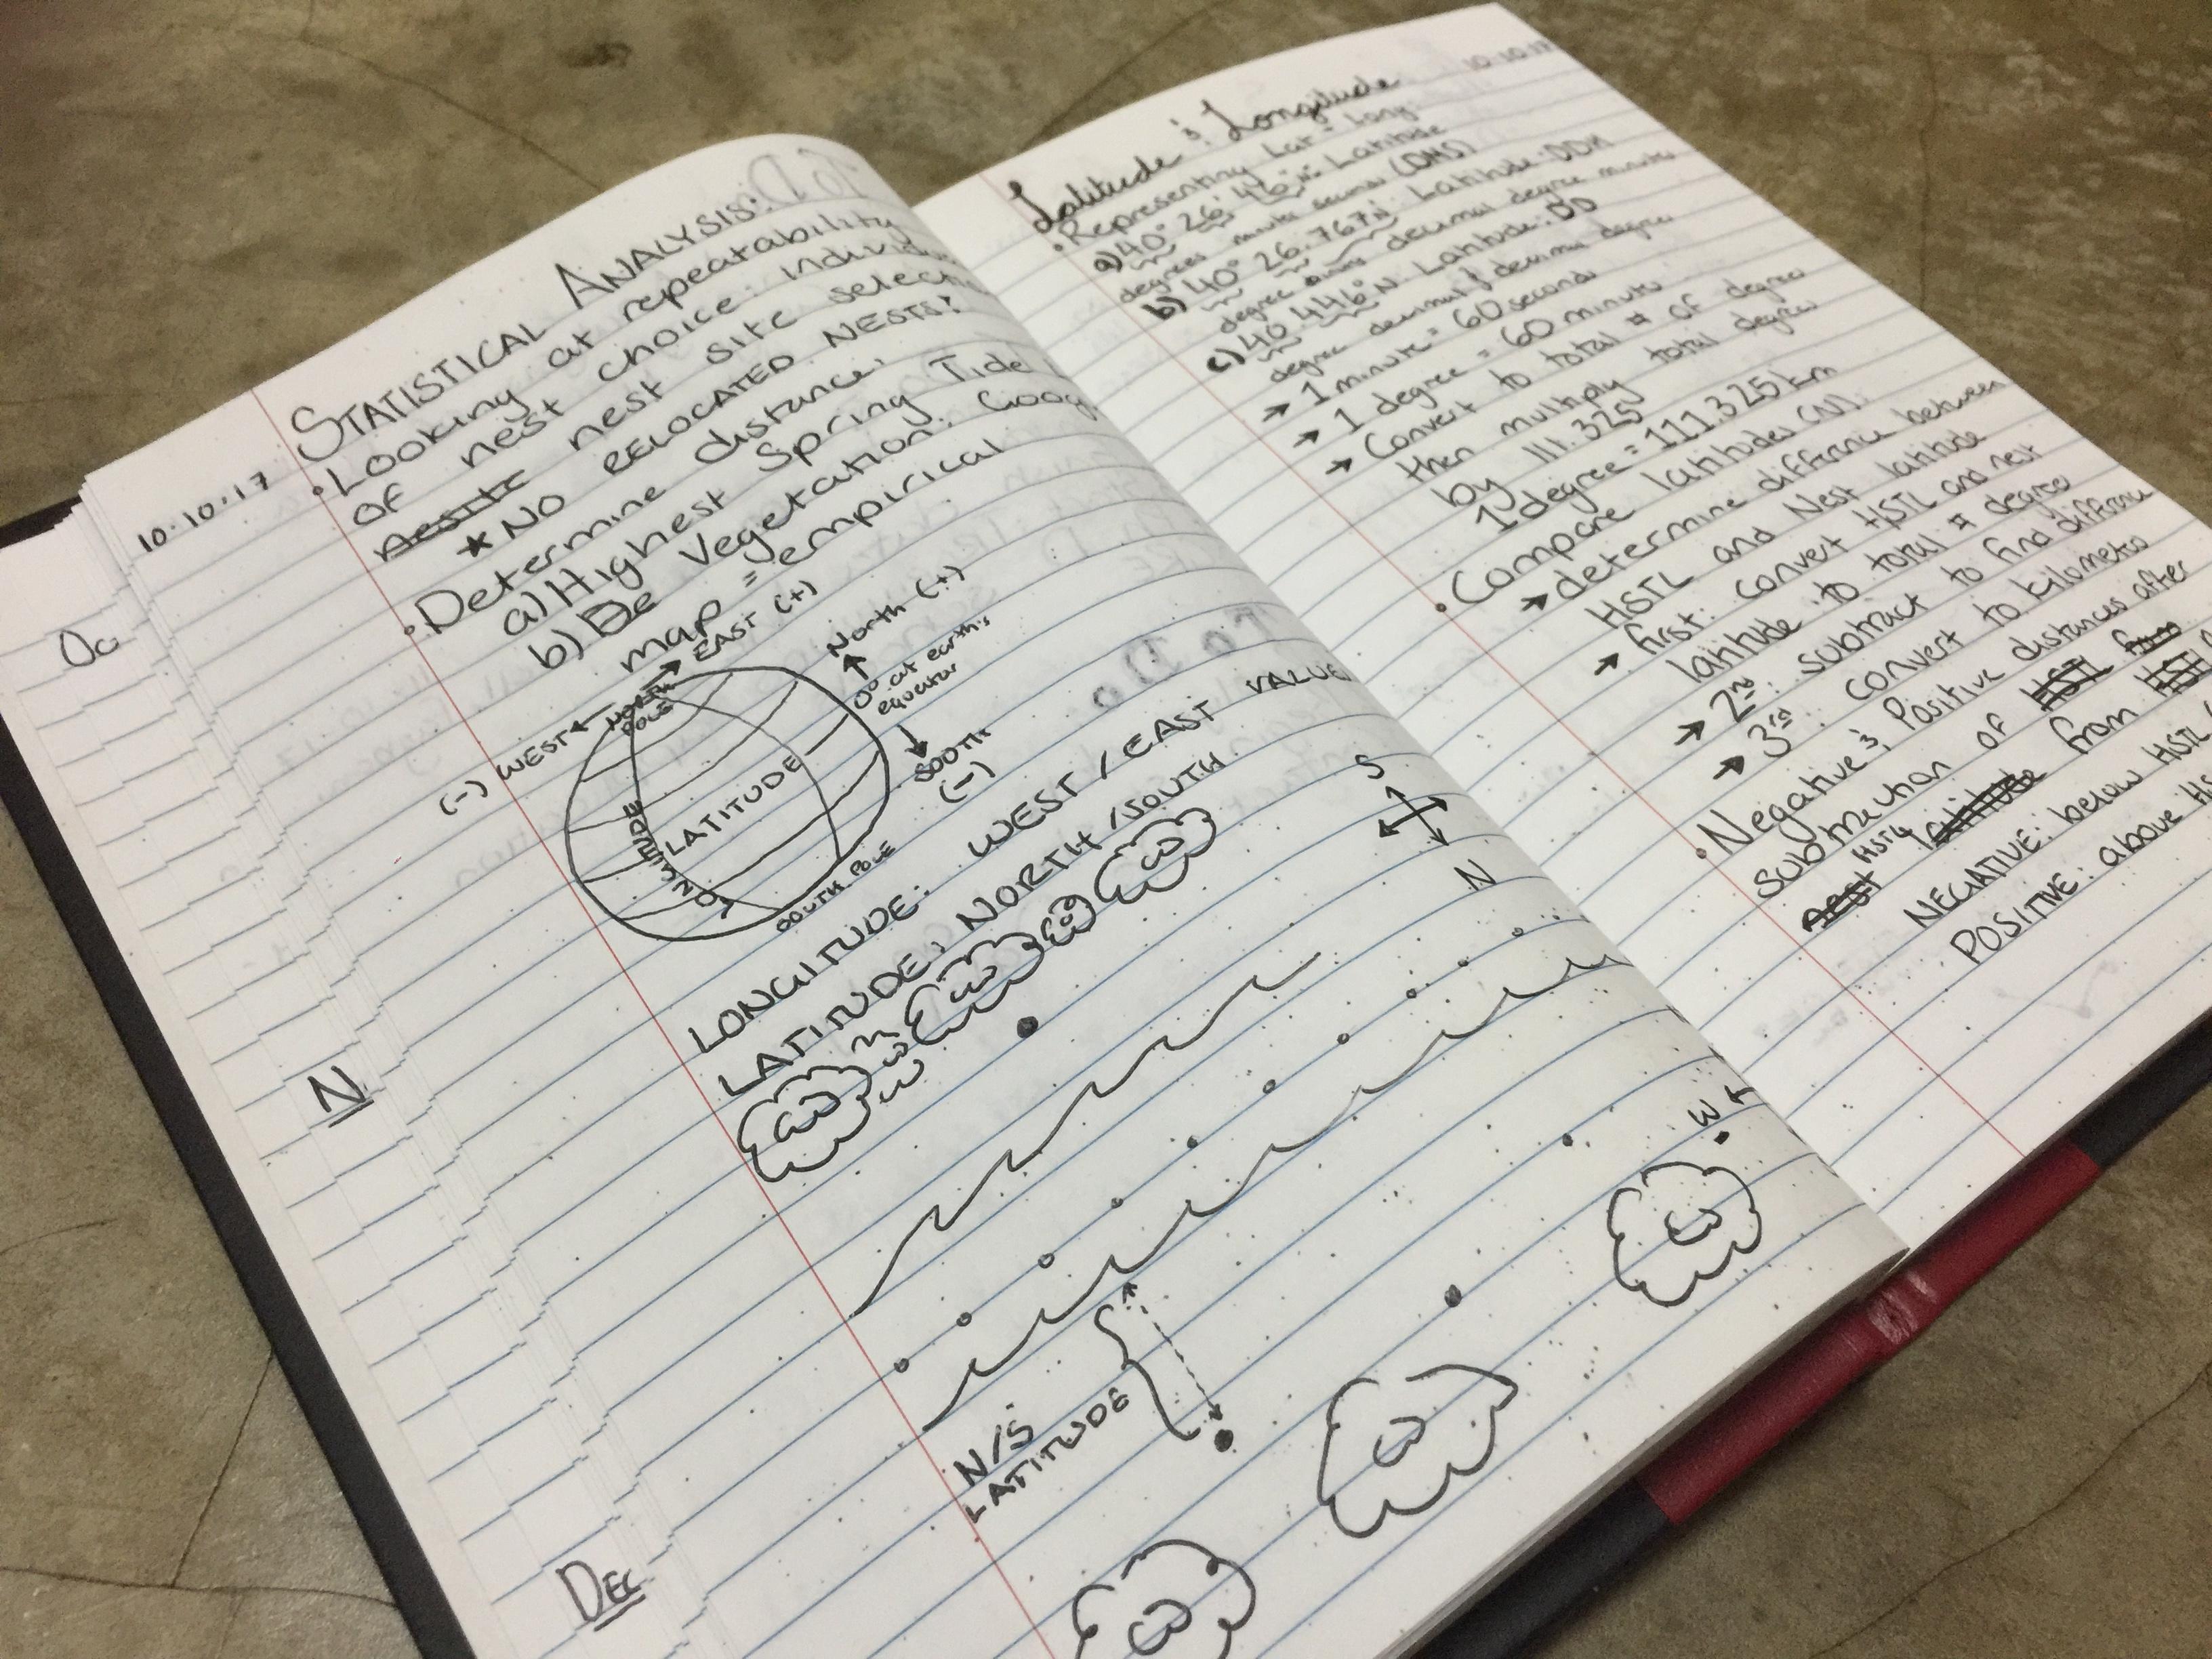 10.10.17
STATISTICAL ANALYSIS:
• Looking at repeatability
of nest choice: individual
nest site selection
★ NO RELOCATED NESTS!
• Determine distance:
a) Highest Spring Tide
b) Vegetation: Goog
map = empirical
(-) WEST ← → EAST (+)
NORTH POLE
North (+)
0° at earth's
equator
SOUTH
(-)
LATITUDE
LONGITUDE
SOUTH POLE
LONGITUDE: WEST / EAST VALUE
LATITUDE: NORTH / SOUTH
S
N
N/S
LATITUDE
Oc
N
DEC
10.10.17
Latitude & Longitude
• Representing Lat = Long:
a) 40° 26' 46" N: Latitude
degrees minute second (DMS)
b) 40° 26.767' N: Latitude: DDM
degree decimal degree minute
c) 40.446° N Latitude: DD
degree decimal decimal degree
→ 1 minute = 60 seconds
→ 1 degree = 60 minutes
→ Convert to total # of degree
then multiply total degree
by 111.325
1 degree = 111.325 km
• Compare latitudes (N):
→ determine difference between
HSTL and Nest latitude
→ first: convert HSTL and nest
latitude to total # degree
→ 2nd: subtract to find difference
→ 3rd: convert to kilometers
• Negative & Positive distances after
Subtraction of HSTL from
HSTL latitude from HSTL
nest
NEGATIVE: below HSTL
POSITIVE: above HS